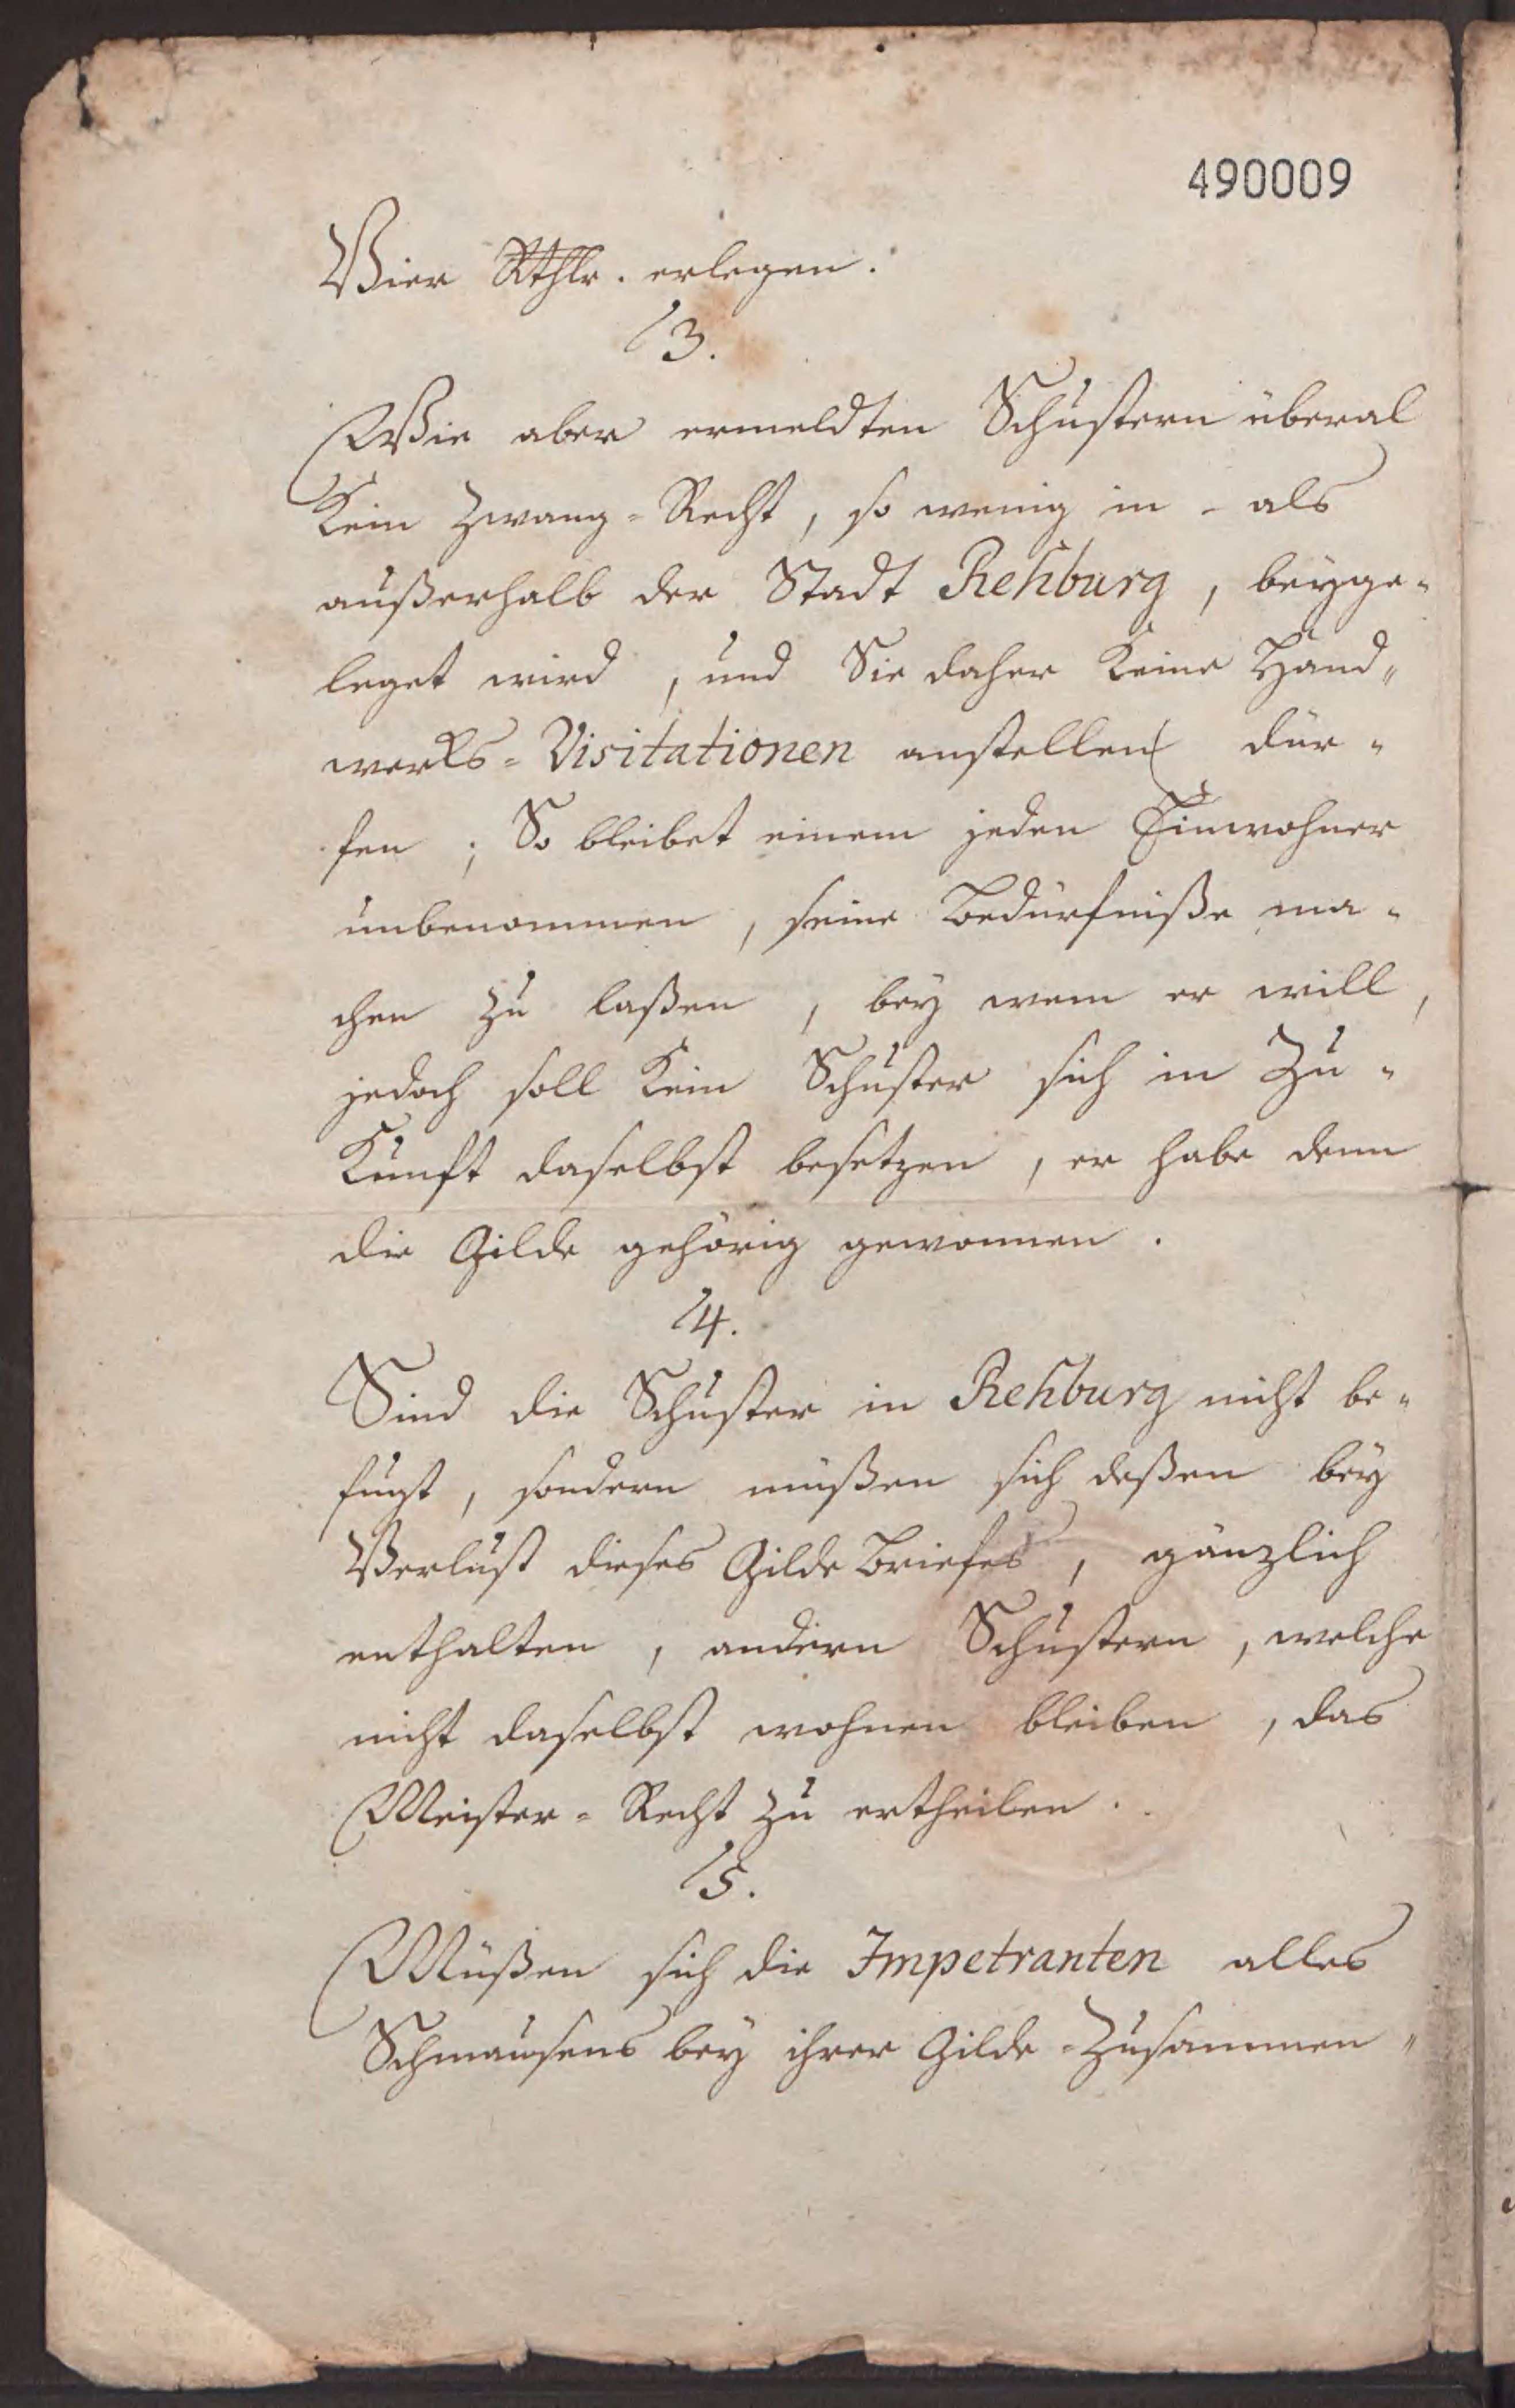 490009
Vier Rthlr. erlegen.
13.
Wie aber ermeldten Schustern überal
Kein Zwang-Recht, so wenig in- als
außerhalb der Stadt Rehburg, beyge-
leget wird, und Sie daher Keine Hand-
werks-Visitationen anstellen dür-
fen; So bleibet einem jeden Einwohner
unbenommen, seine Bedürfniße ma-
chen zu laßen, bey wem er will,
jedoch soll Kein Schuster sich in Zu-
Kunft daselbst besetzen, er habe denn
die Gilde gehörig gewonnen.
14.
Sind die Schuster in Rehburg nicht be-
fugt, sondern müßen sich deßen bey
Verlust dieses Gilde Briefes, gänzlich
enthalten, andern Schustern, welche
nicht daselbst wohnen bleiben, das
Meister-Recht zu ertheilen.
15.
Müßen sich die Impetranten alles
Schmausens bey ihrer Gilde-Zusammen-